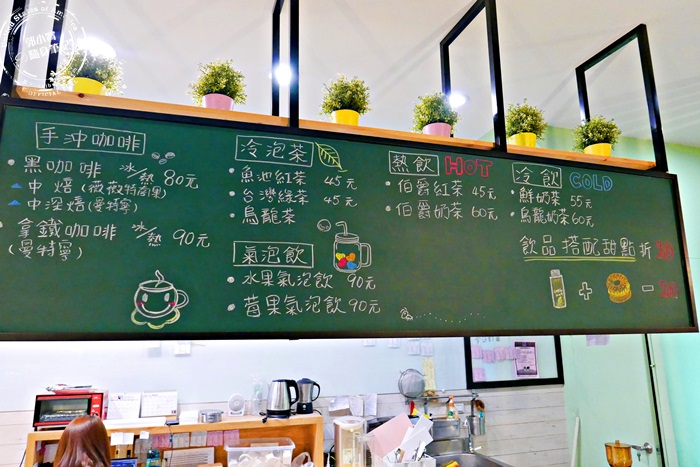 手沖咖啡
黑咖啡 冰/熱 80元
中焙(薇薇特南果)
中深焙(曼特寧)
拿鐵咖啡 冰/熱 90元
(曼特寧)
冷泡茶
魚池紅茶 45元
台灣綠茶 45元
烏龍茶
氣泡飲
水果氣泡飲 90元
莓果氣泡飲 90元
熱飲 HOT
伯爵紅茶 45元
伯爵奶茶 60元
冷飲 COLD
鮮奶茶 55元
烏龍奶茶 60元
飲品搭配甜點折
+ -